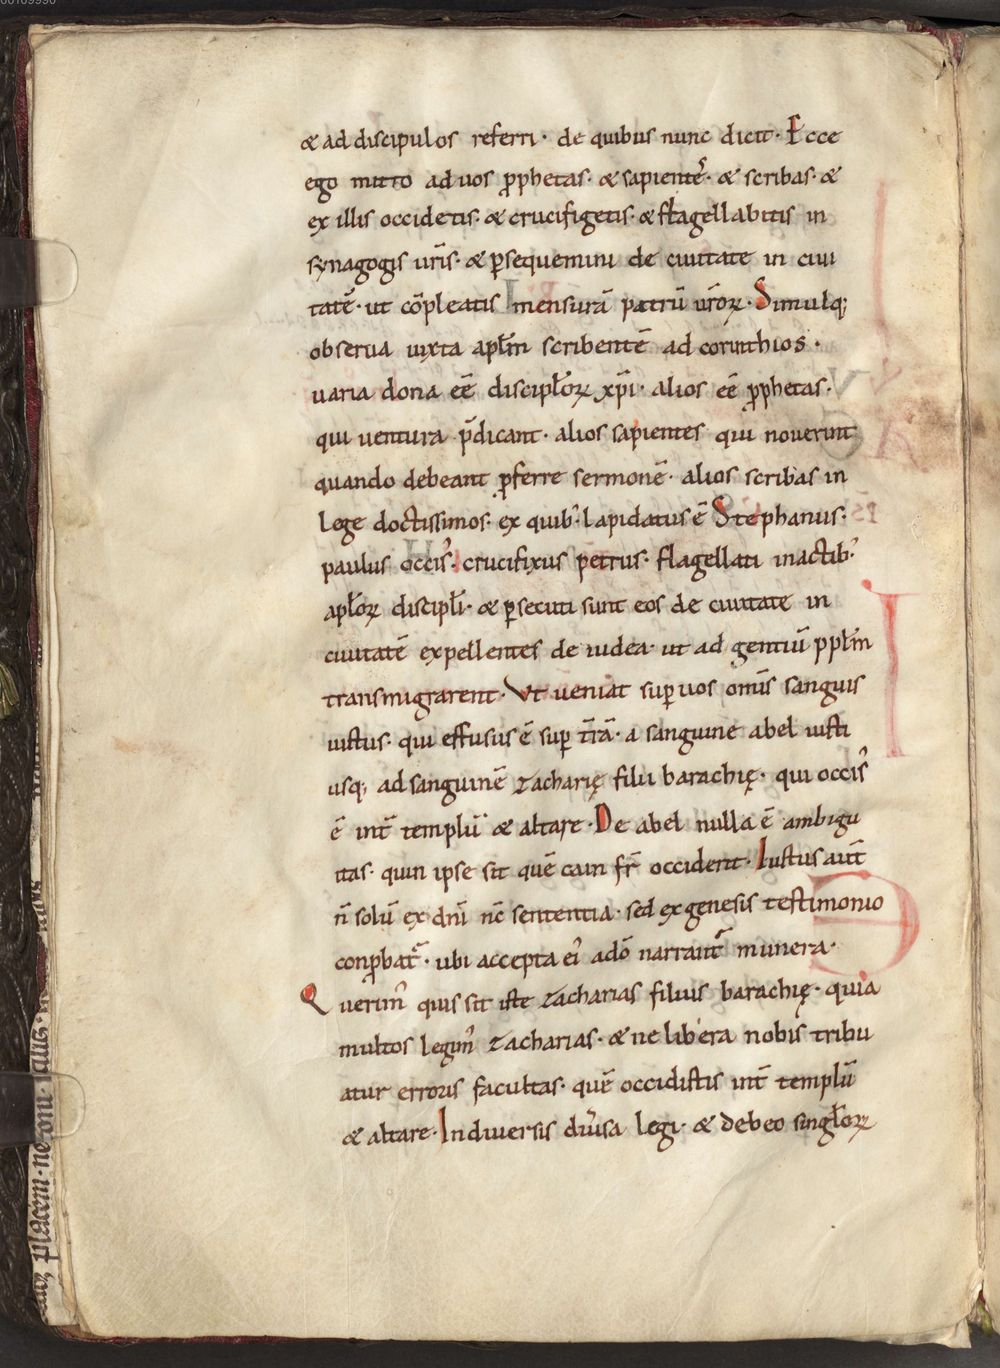 & ad discipulos referri · de quibus nunc dicit · Ecce
ego mitto ad uos p̱phetas · & sapientēˢ · & scribas · &
ex illis occidetis · & crucifigetis · & flagellabitis in
synagogis ur̄is · & ꝑsequemini de ciuitate in ciui
tatē · ut cōpleatis mensurā patrū ur̄oꝝ · Simulq;
obserua iuxta apl̄m scribentē ad corinthios ·
uaria dona eē discipl̄oꝝ xp̄i · alios eē ꝓphetas ·
qui uentura p̄dicant · alios sapientes qui nouerint
quando debeant ꝓferre sermonē · alios scribas in
lege doctissimos · ex quib; lapidatus ē Stephanus ·
paulus occisꝰ · crucifixus petrus · flagellati in actibꝰ
apl̄oꝝ discipl̄i · & ꝑsecuti sunt eos de ciuitate in
ciuitatē expellentes de iudea · ut ad gentiū ppl̄m
transmigrarent · Vt ueniat suꝑ uos om̄is sanguis
iustus · qui effusus ē suꝑ t̄rā · a sanguine abel iusti
usq; ad sanguinē zacharię filii barachię · qui occisꝰ
ē int̄ templū & altare · De abel nulla ē ambigu
itas · quin ipse sit quē cain fr̄ occiderit · Iustus aut̄
n̄ solū ex dn̄i nc̄ sententia · sed ex genesis testimonio
conꝓbat᷑ · ubi accepta eiꝰ a dō narrant᷑ munera ·
Querimꝰ quis sit iste zacharias filius barachię · quia
multos legimꝰ zacharias · & ne libera nobis tribu
atur erroris facultas · quē occidistis int̄ templū
& altare · In diuersis diu̓sa legi · & debeo singl̄oꝝ
placem · ne